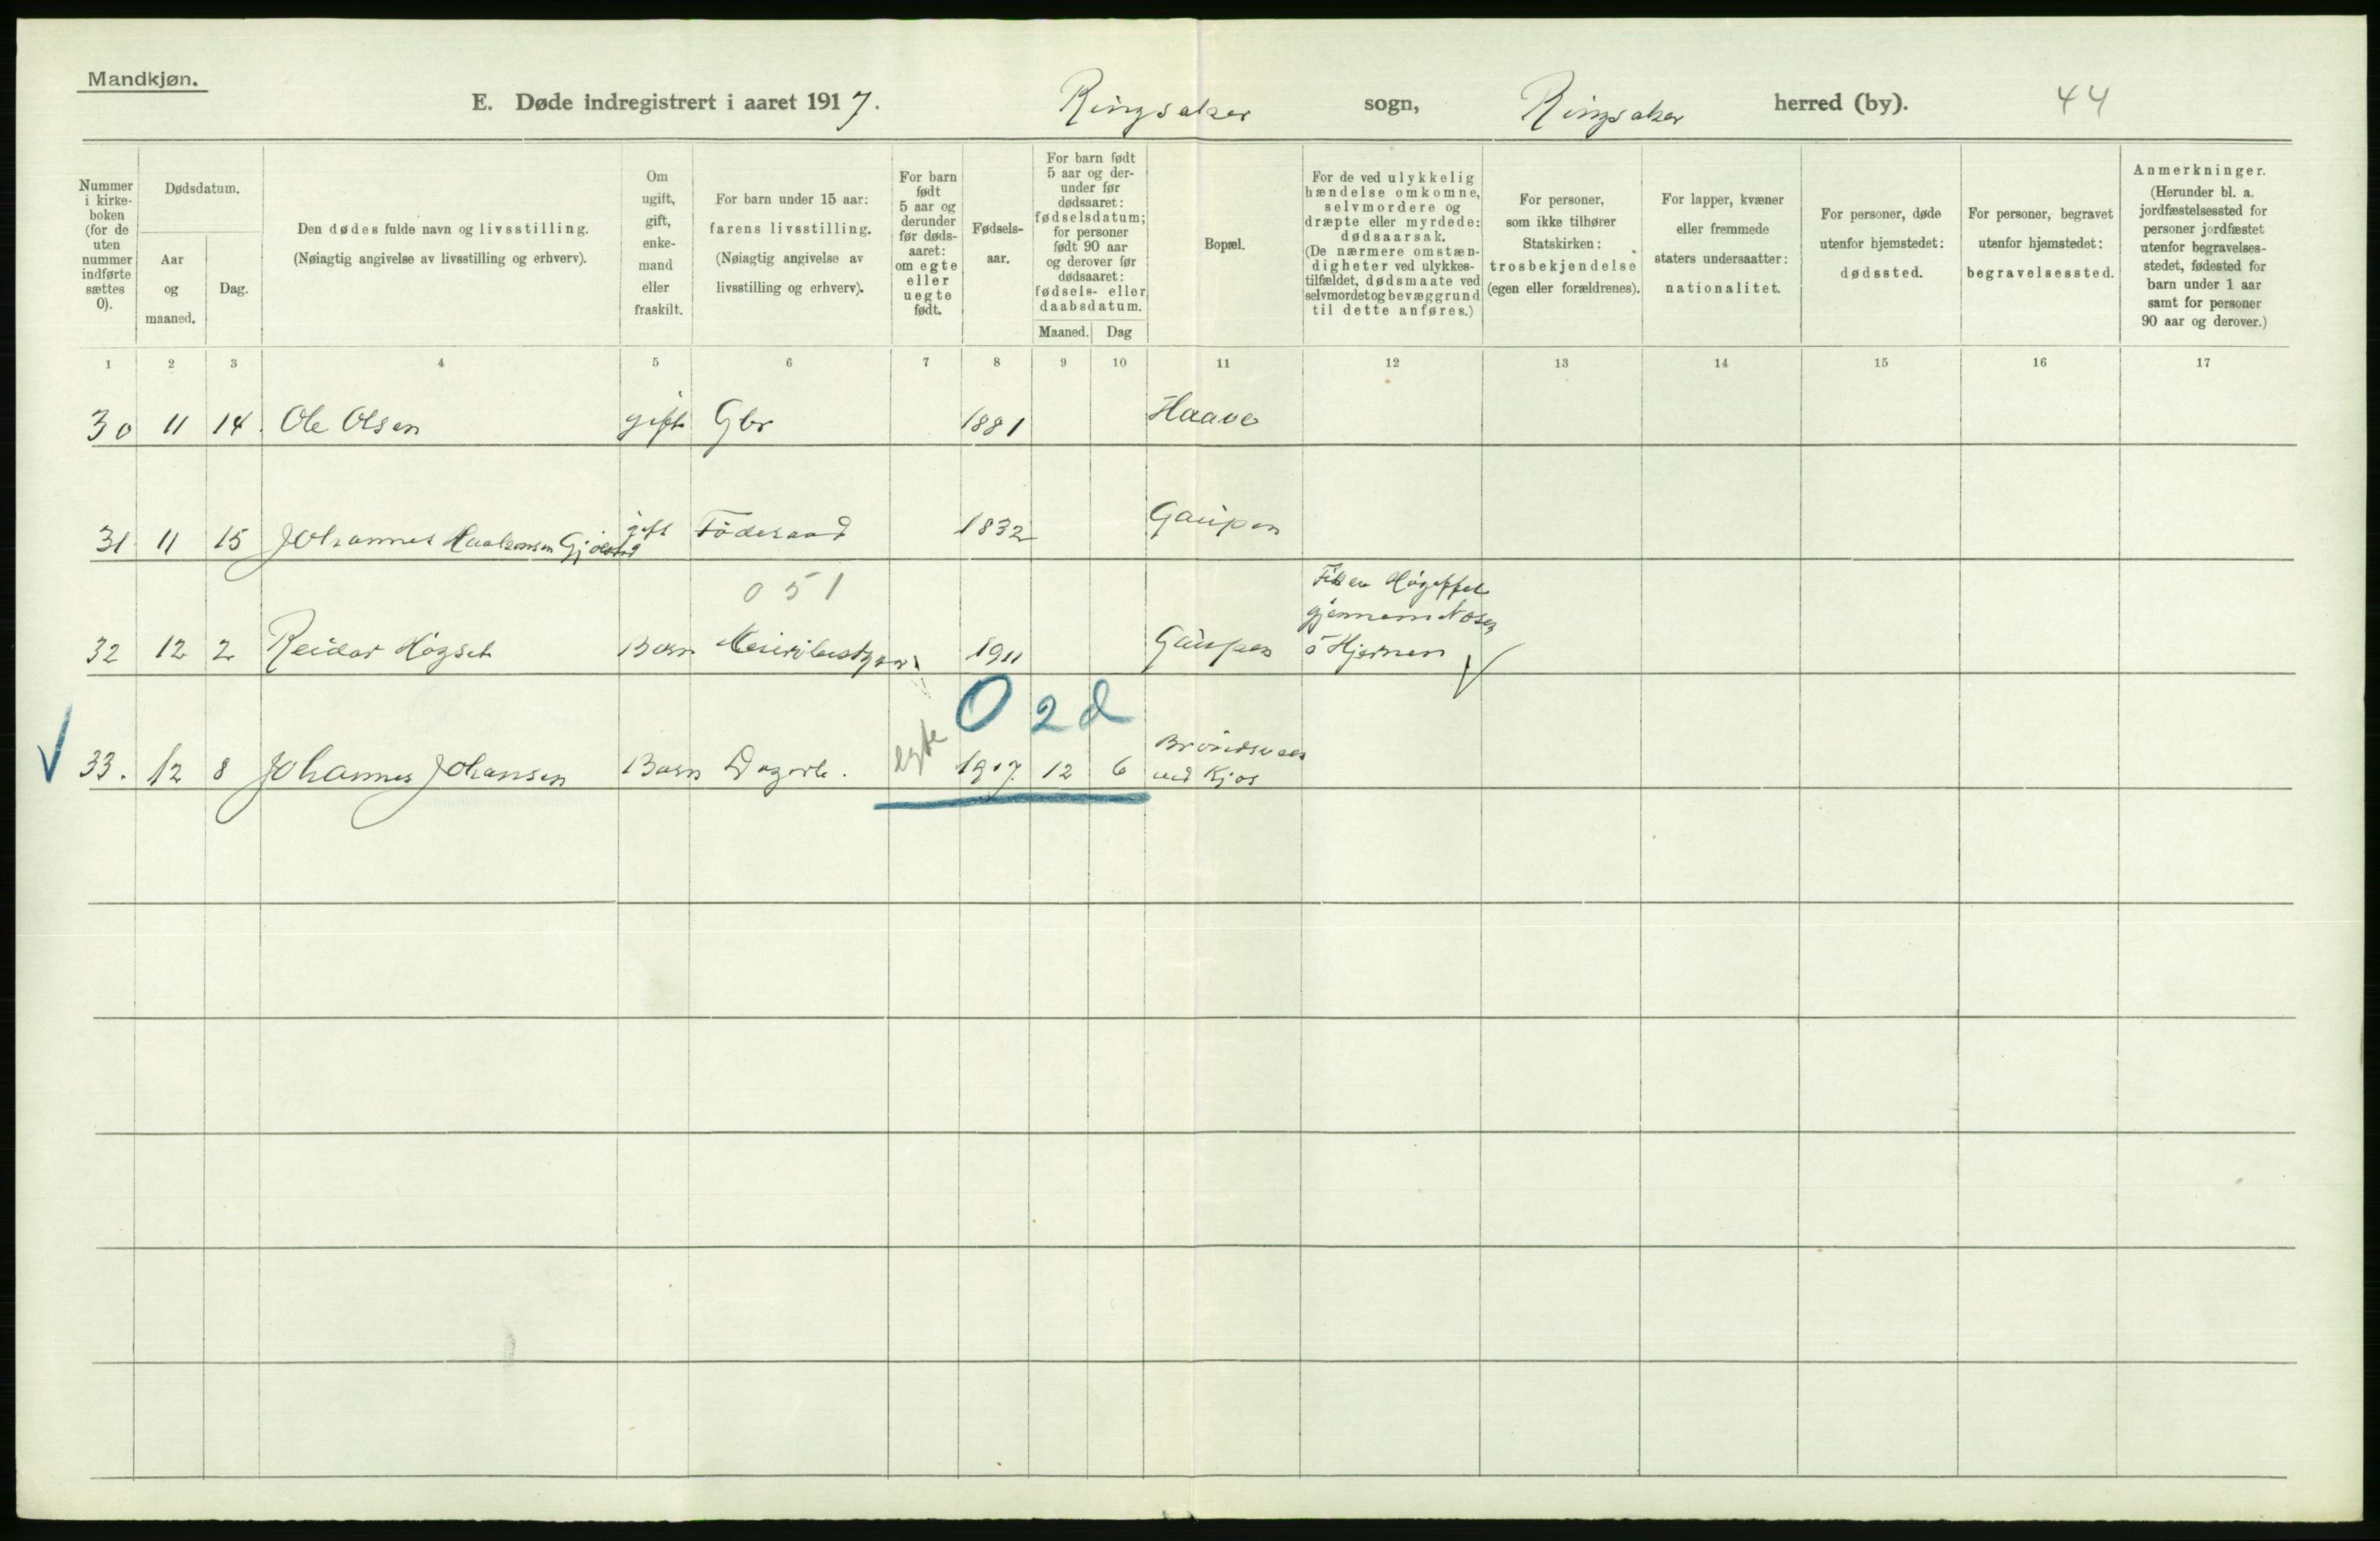 Mandkjøn.
E. Døde indregistrert i aaret 1917. Ringsaker sogn, Ringsaker herred (by). 44
Nummer i kirke- boken (for de uten nummer indførte sættes 0).
Dødsdatum.
Aar og maaned.
Dag.
Den dødes fulde navn og livsstilling.
(Nøiagtig angivelse av livsstilling og erhverv).
Om ugift, gift, enke- mand eller fraskilt.
For barn under 15 aar: farens livsstilling.
(Nøiagtig angivelse av livsstilling og erhverv).
For barn født 5 aar og derunder før døds- aaret: om egte eller uegte født.
Fødsels- aar.
For barn født 5 aar og der- under før dødsaaret: fødselsdatum; for personer født 90 aar og derover før dødsaaret: fødsels- eller daabsdatum.
Maaned. Dag
Bopæl.
For de ved ulykkelig hændelse omkomne, selvmordere og dræpte eller myrdede: dødsaarsak.
(De nærmere omstæn- digheter ved ulykkes- tilfældet, dødsmaate ved selvmordet og bevæggrund til dette anføres.)
For personer, som ikke tilhører Statskirken: trosbekjendelse (egen eller forældrenes).
For lapper, kvæner eller fremmede staters undersaatter: nationalitet.
For personer, døde utenfor hjemstedet: dødssted.
For personer, begravet utenfor hjemstedet: begravelsessted.
Anmerkninger.
(Herunder bl. a. jordfæstelsessted for personer jordfæstet utenfor begravelses- stedet, fødested for barn under 1 aar samt for personer 90 aar og derover.)
1 2 3 4 5 6 7 8 9 10 11 12 13 14 15 16 17
30 11 14. Ole Olsen gift Gbr 1881 Haave
31 11 15 Johannes Haakensen gift Föderaad 1832 Gaupen
051
32 12 2 Reidar Høgset Barn 1911 Gaupen
Fik en
gjennem Nosen
o Hjernen
0 2 d
33. 12 8 Johannes Johansen Barn Dagarb. egte 1917. 12 6
ved Kjos